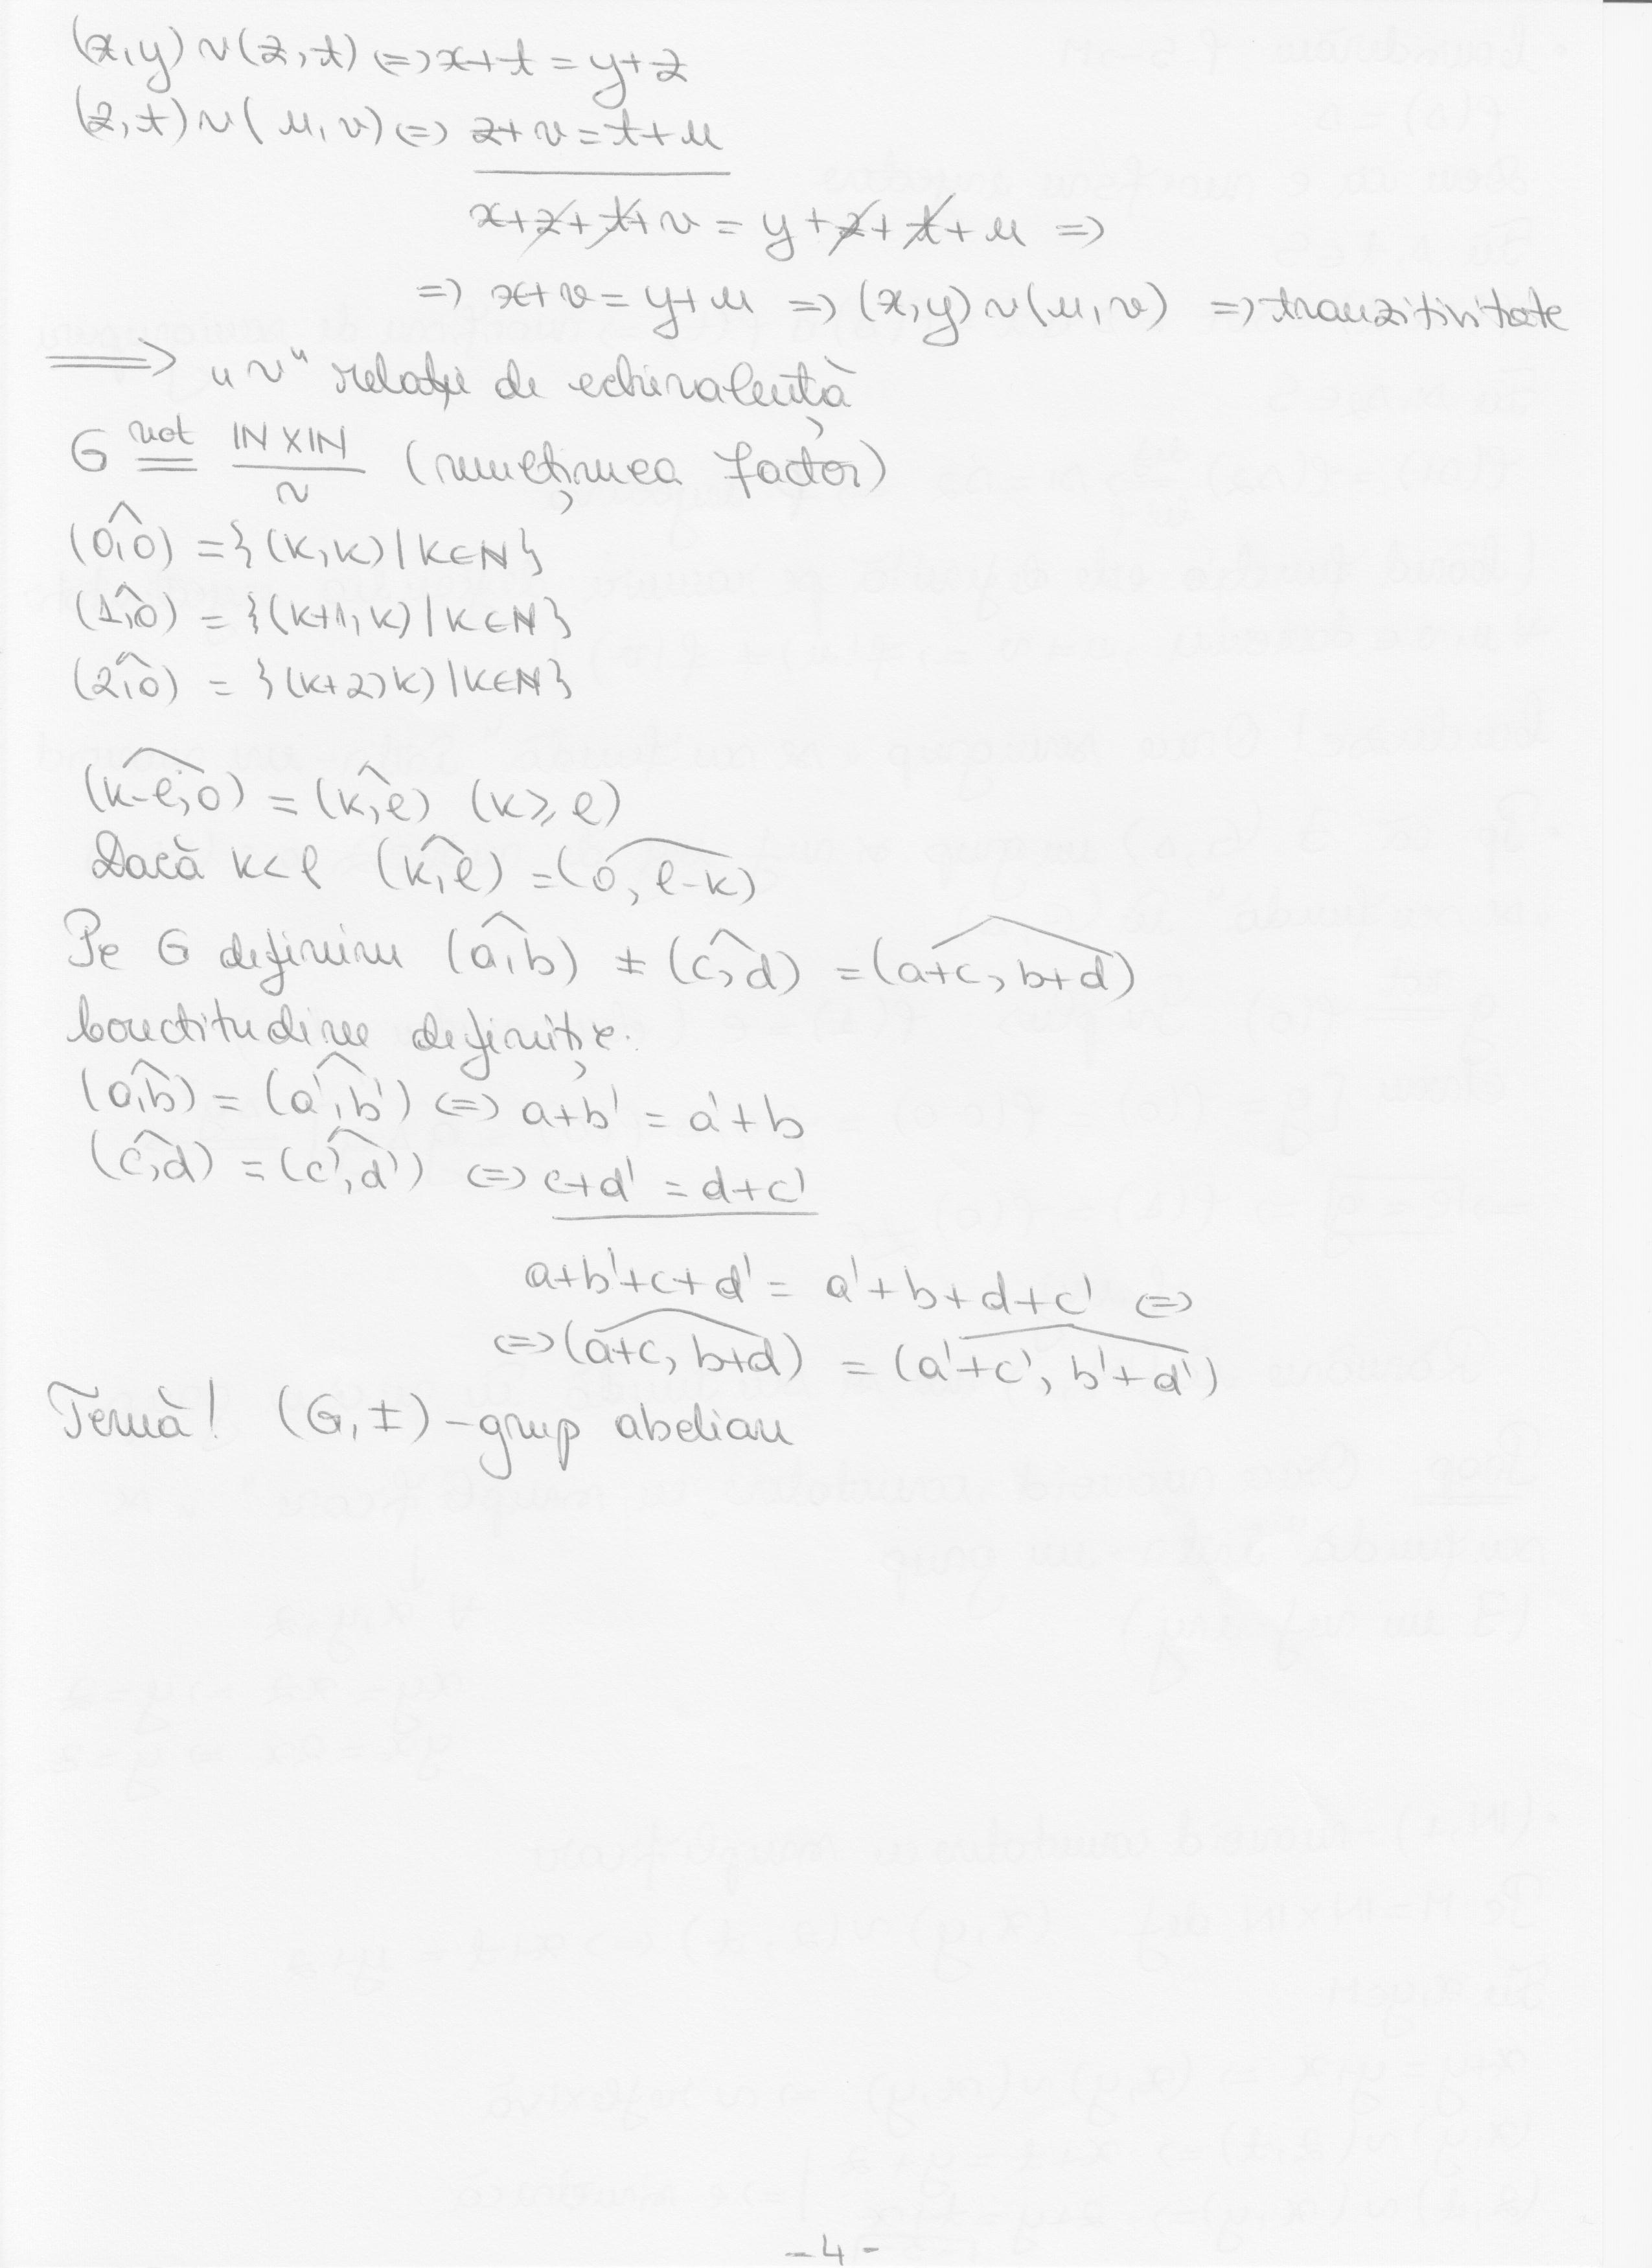 (x,y) ~ (z,t) <=> x+t = y+z
(z,t) ~ (u,v) <=> z+v = t+u
x+z+t+v = y+z+t+u =>
=> x+v = y+u => (x,y) ~ (u,v) => tranzitivitate
==> „~" relație de echivalență
G not= IN×IN/~ (mulțimea factor)
(0,0)^ = {(k,k) | k∈N}
(1,0)^ = {(k+1,k) | k∈N}
(2,0)^ = {(k+2,k) | k∈N}
(k-l,0)^ = (k,l)^ (k≥l)
Dacă k<l (k,l)^ = (0,l-k)^
Pe G definim (a,b)^ ± (c,d)^ = (a+c, b+d)^
Corectitudine definiție.
(a,b)^ = (a',b')^ <=> a+b' = a'+b
(c,d)^ = (c',d')^ <=> c+d' = d+c'
a+b'+c+d' = a'+b+d+c' <=>
<=> (a+c, b+d)^ = (a'+c', b'+d')^
Temă! (G,±) - grup abelian
-4-